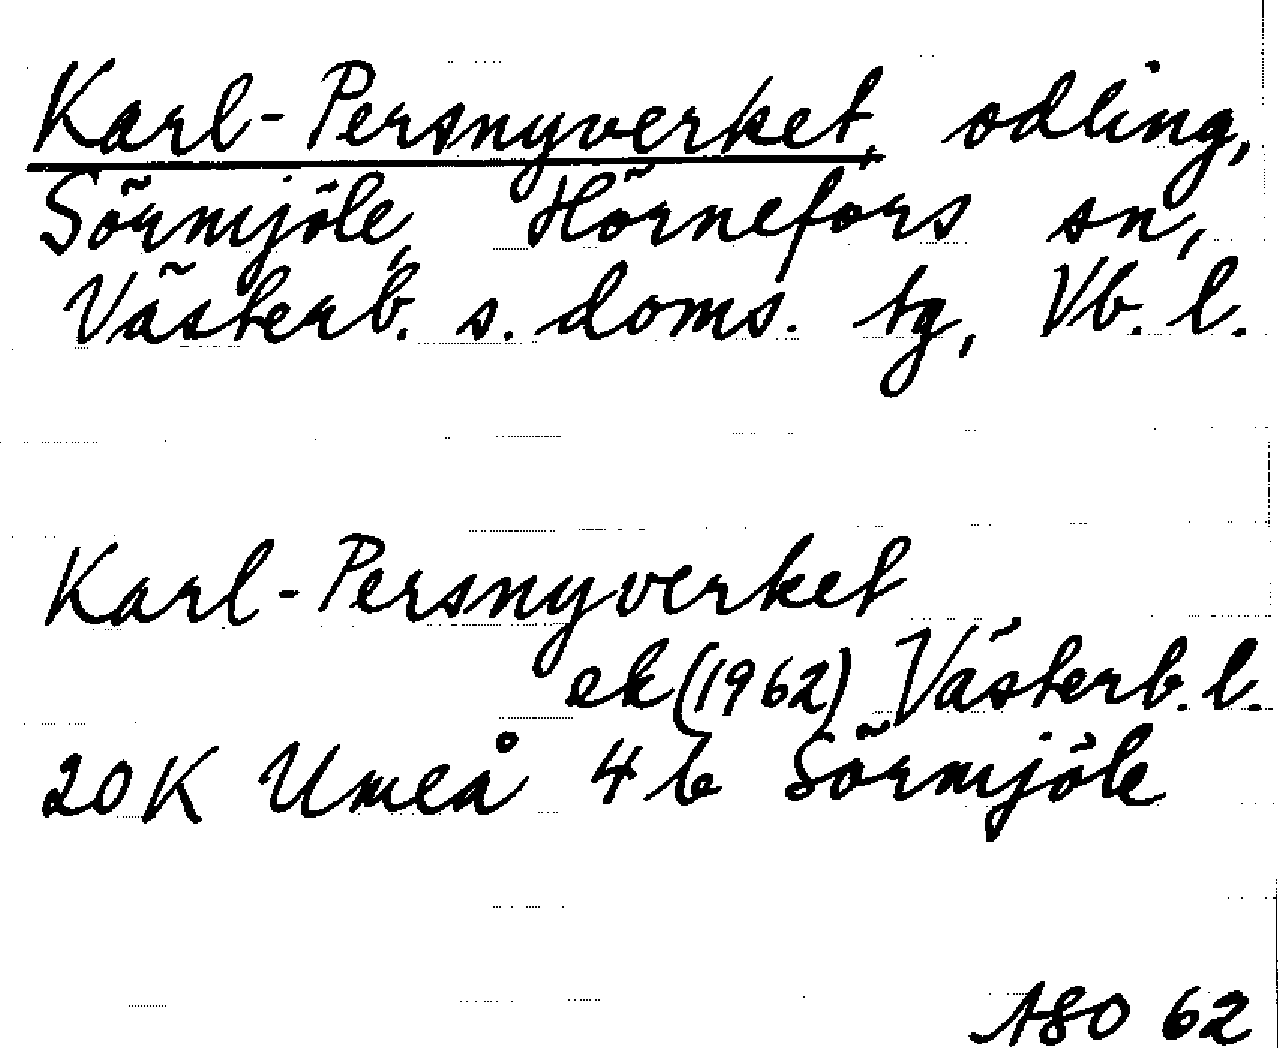 Karl-Persnyverket, odling,
Sörmjöle, Hörnefors sn,
Västerb. s. doms. tg, Vb. l.
Karl-Persnyverket
ek (1962) Västerb. l.
20K Umeå 4b Sörmjöle
ASO 62